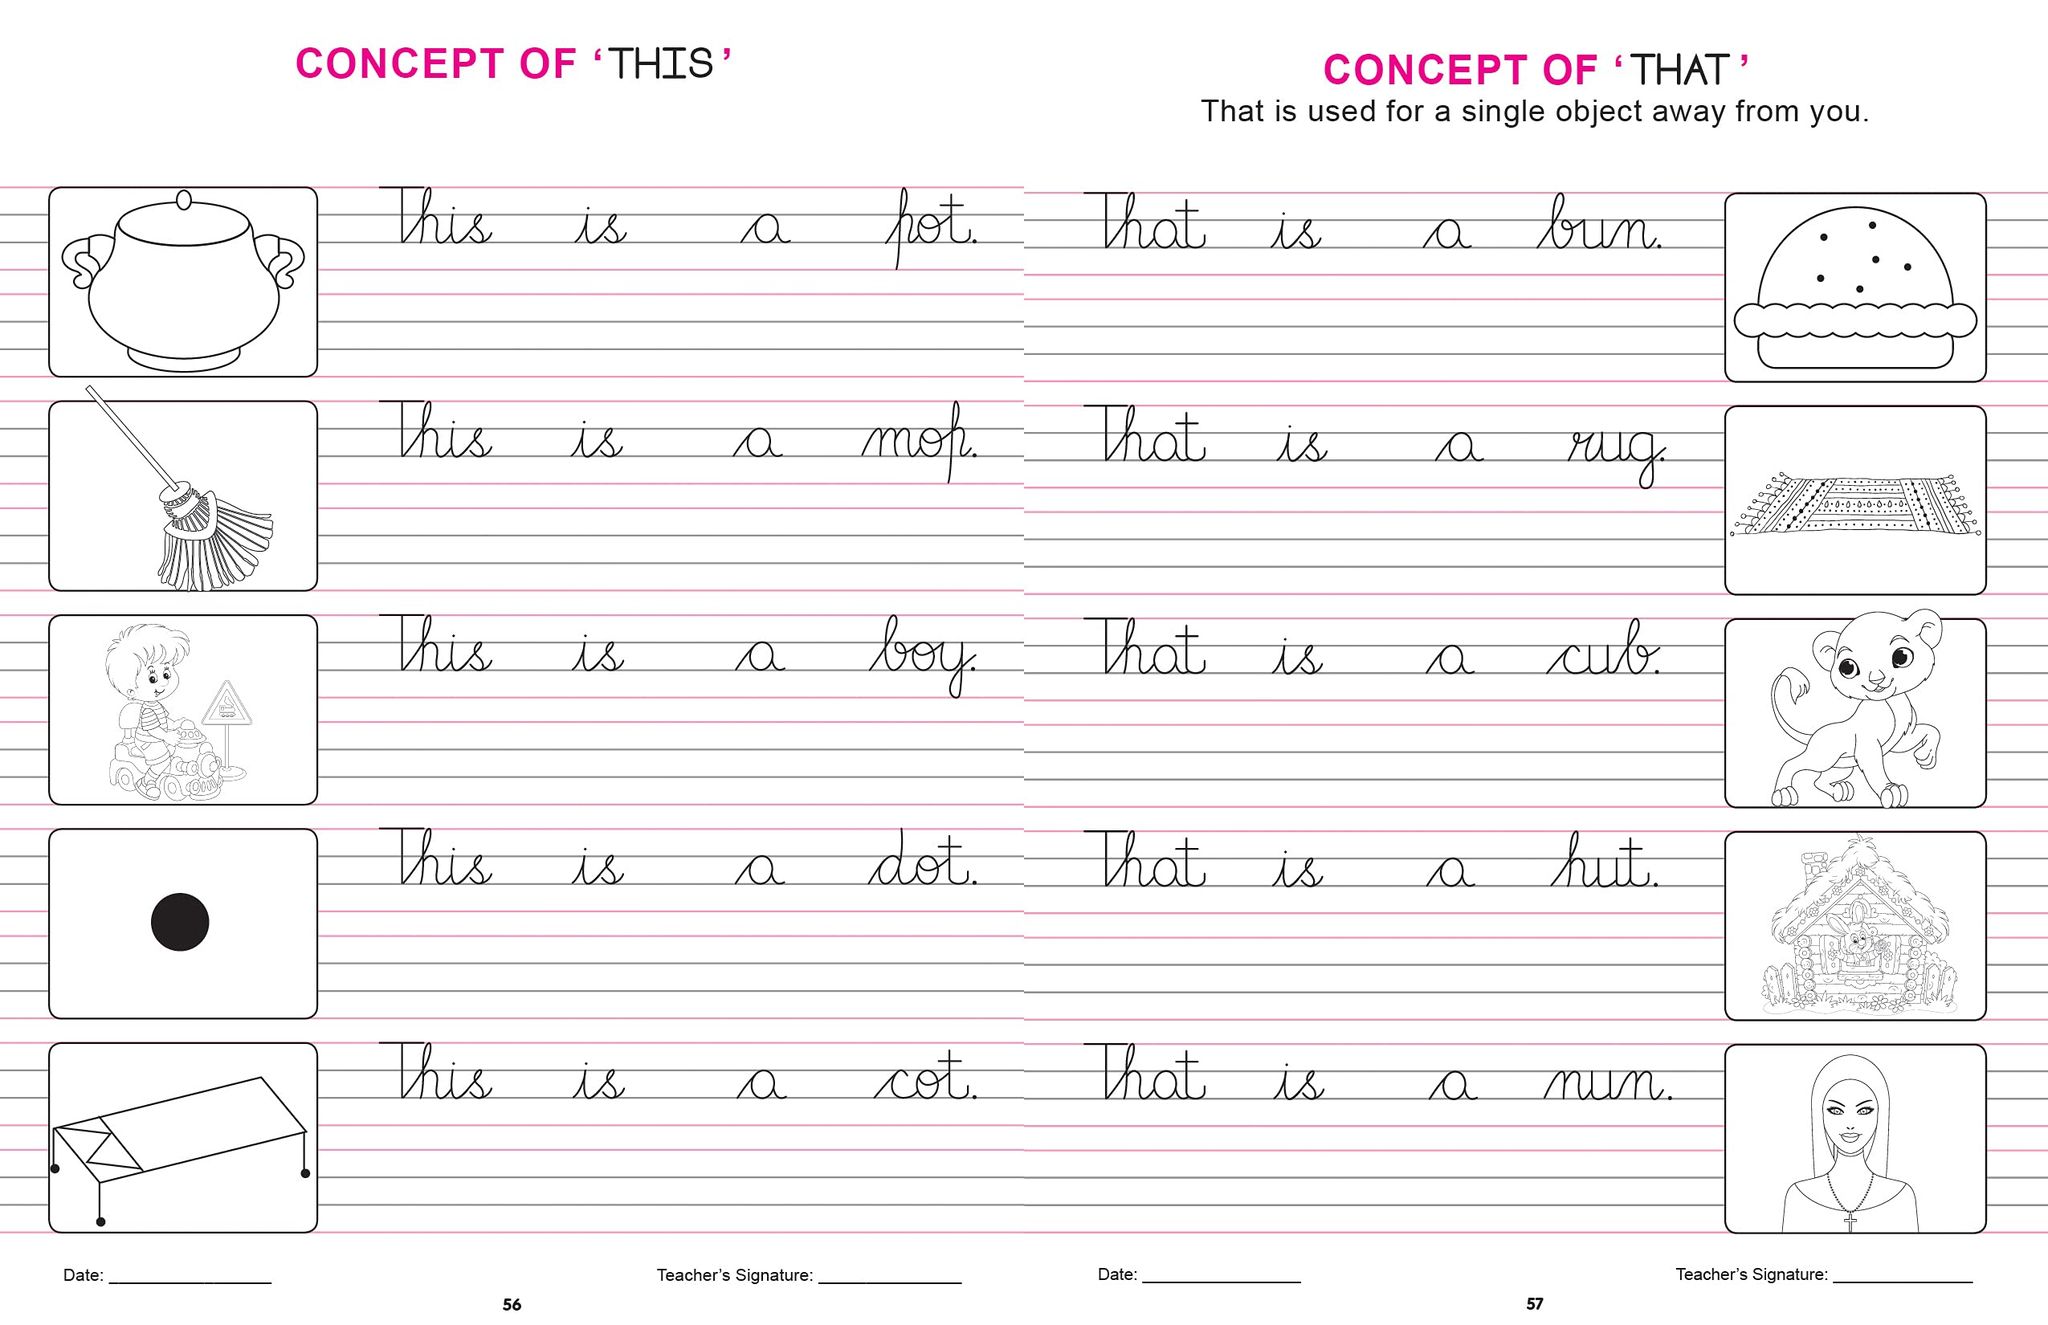 CONCEPT OF ‘THIS’
This is a pot.
This is a mop.
This is a boy.
This is a dot.
This is a cot.
Date: _________________
Teacher’s Signature: _______________
56
CONCEPT OF ‘THAT’
That is used for a single object away from you.
That is a bun.
That is a rug.
That is a cub.
That is a hut.
That is a nun.
Date: _________________
Teacher’s Signature: _______________
57